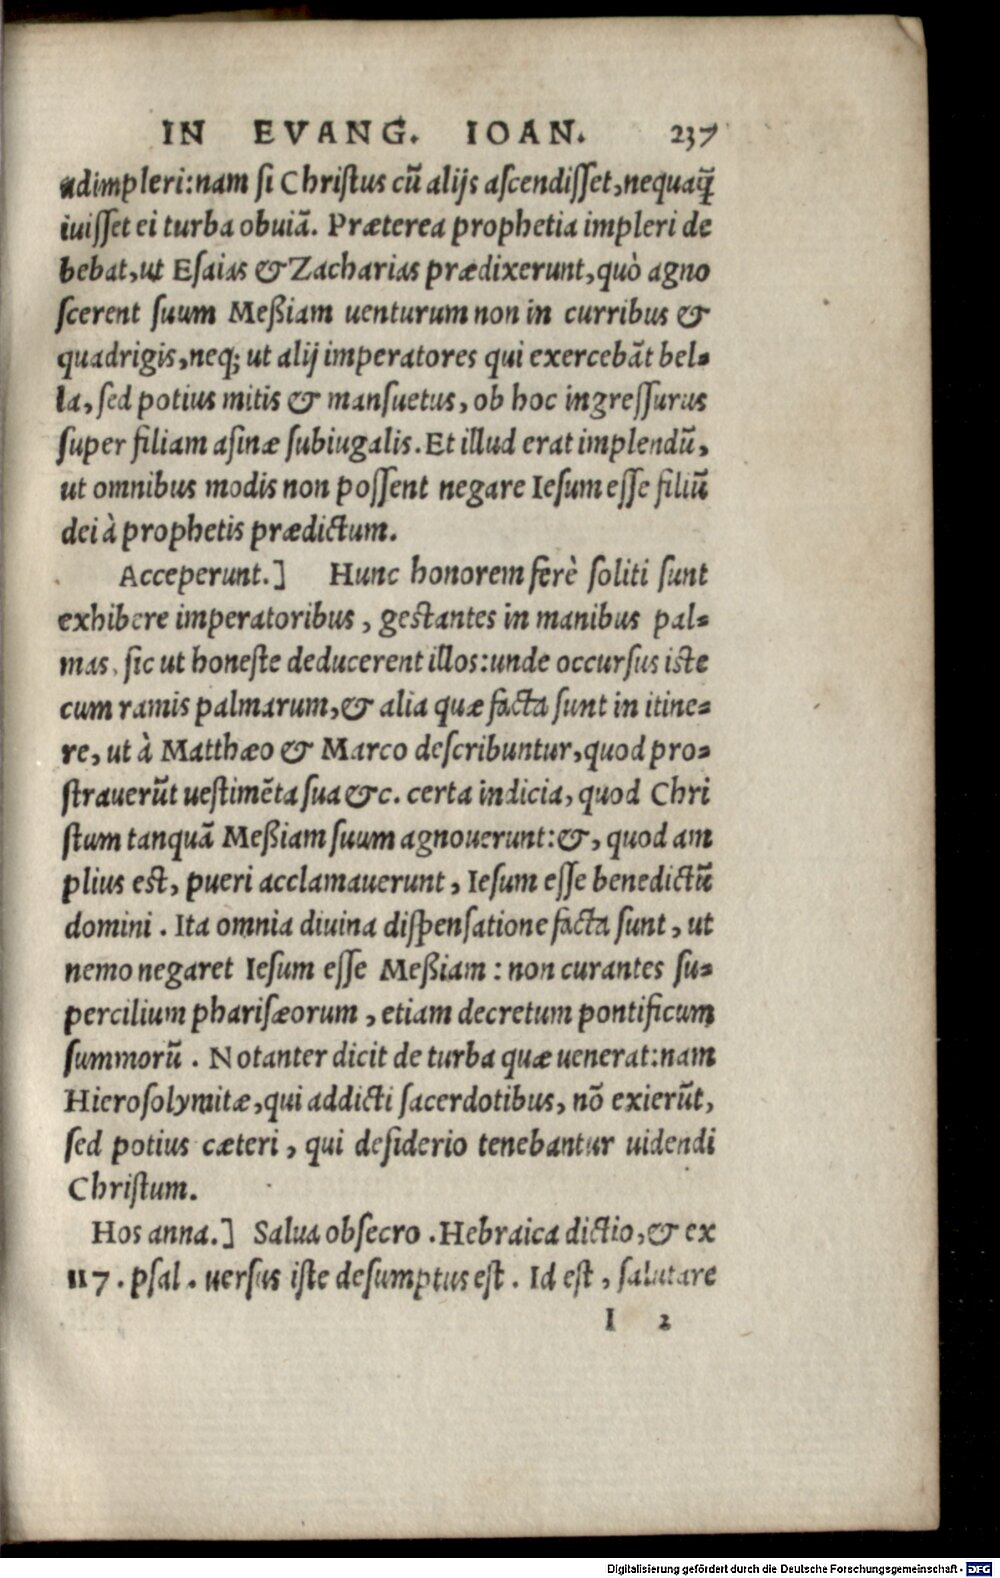 IN EVANG. IOAN. 237
adimpleri: nam si Christus cũ alijs ascendisset, nequaq̃
iuisset ei turba obuiã. Præterea prophetia impleri de
bebat, ut Esaias & Zacharias prædixerunt, quò agno
scerent suum Meßiam uenturum non in curribus &
quadrigis, neq; ut alij imperatores qui exercebãt bel-
la, sed potius mitis & mansuetus, ob hoc ingressurus
super filiam asinæ subiugalis. Et illud erat implendũ,
ut omnibus modis non possent negare Iesum esse filiũ
dei à prophetis prædictum.
Acceperunt.] Hunc honorem ferè soliti sunt
exhibere imperatoribus, gestantes in manibus pal-
mas, sic ut honeste deducerent illos: unde occursus iste
cum ramis palmarum, & alia quæ facta sunt in itine-
re, ut à Matthæo & Marco describuntur, quod pro-
strauerũt uestimẽta sua &c. certa indicia, quod Chri
stum tanquã Meßiam suum agnouerunt: &, quod am
plius est, pueri acclamauerunt, Iesum esse benedictũ
domini. Ita omnia diuina dispensatione facta sunt, ut
nemo negaret Iesum esse Meßiam: non curantes su-
percilium pharisæorum, etiam decretum pontificum
summorũ. Notanter dicit de turba quæ uenerat: nam
Hierosolymitæ, qui addicti sacerdotibus, nõ exierũt,
sed potius cæteri, qui desiderio tenebantur uidendi
Christum.
Hosanna.] Salua obsecro. Hebraica dictio, & ex
117. psal. uersus iste desumptus est. Id est, salutare
I 2
Digitalisierung gefördert durch die Deutsche Forschungsgemeinschaft - DFG